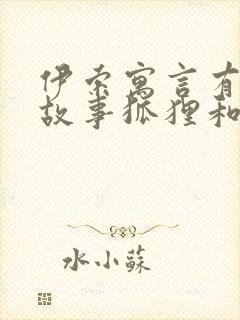 伊索寓言有
故事狐狸和
水小蘇